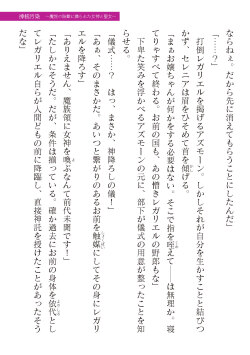 神核汚染 ～魔王の陥穽に嬲らるる女神と聖女～
ならねぇ。だから先に消えてもらうことにしたんだ」
「……？」
打倒レガリエルを掲げるアズモーン。しかしそれが自分を生かすことと結びつ
かず、セレニアは眉をひそめて首を傾げる。
「まぁお嬢ちゃんが何かをする必要はない。そこで指を咥えて――は無理か。寝
てりゃすぐ終わる。お前の国も、あの憎きレガリエルの野郎もな」
下卑た笑みを浮かべるアズモーンの元に、部下が儀式の用意が整ったことを知
らせる。
「儀式……？　はっ、まさか、神降ろしの儀！」
「ああ、そのまさかだ。あいつと繋がりのあるお前を触媒にしてその身にレガリ
エルを降ろす」
「ありえません、魔族領に女神を喚ぶなんて前代未聞です！」
「たしかにそうだ。だが、条件は揃っている。確か過去にお前の身体を依代とし
てレガリエル自らが人間どもの前に降臨し、直接神託を授けたことがあったそう
だな」